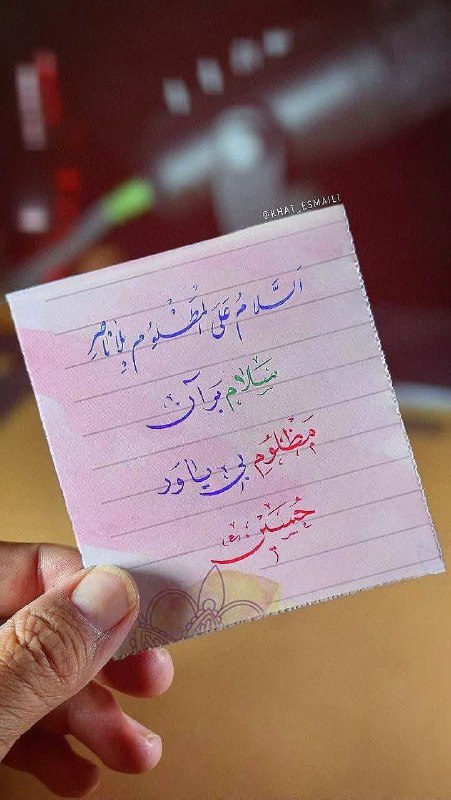 @KHAT_ESMAILI
اَلسَّلامُ عَلَی المَظْلُومِ بِلا ناصِرِ
سَلام بَر آن
مَظْلُومِ بی یاوَر
حُسَین ع